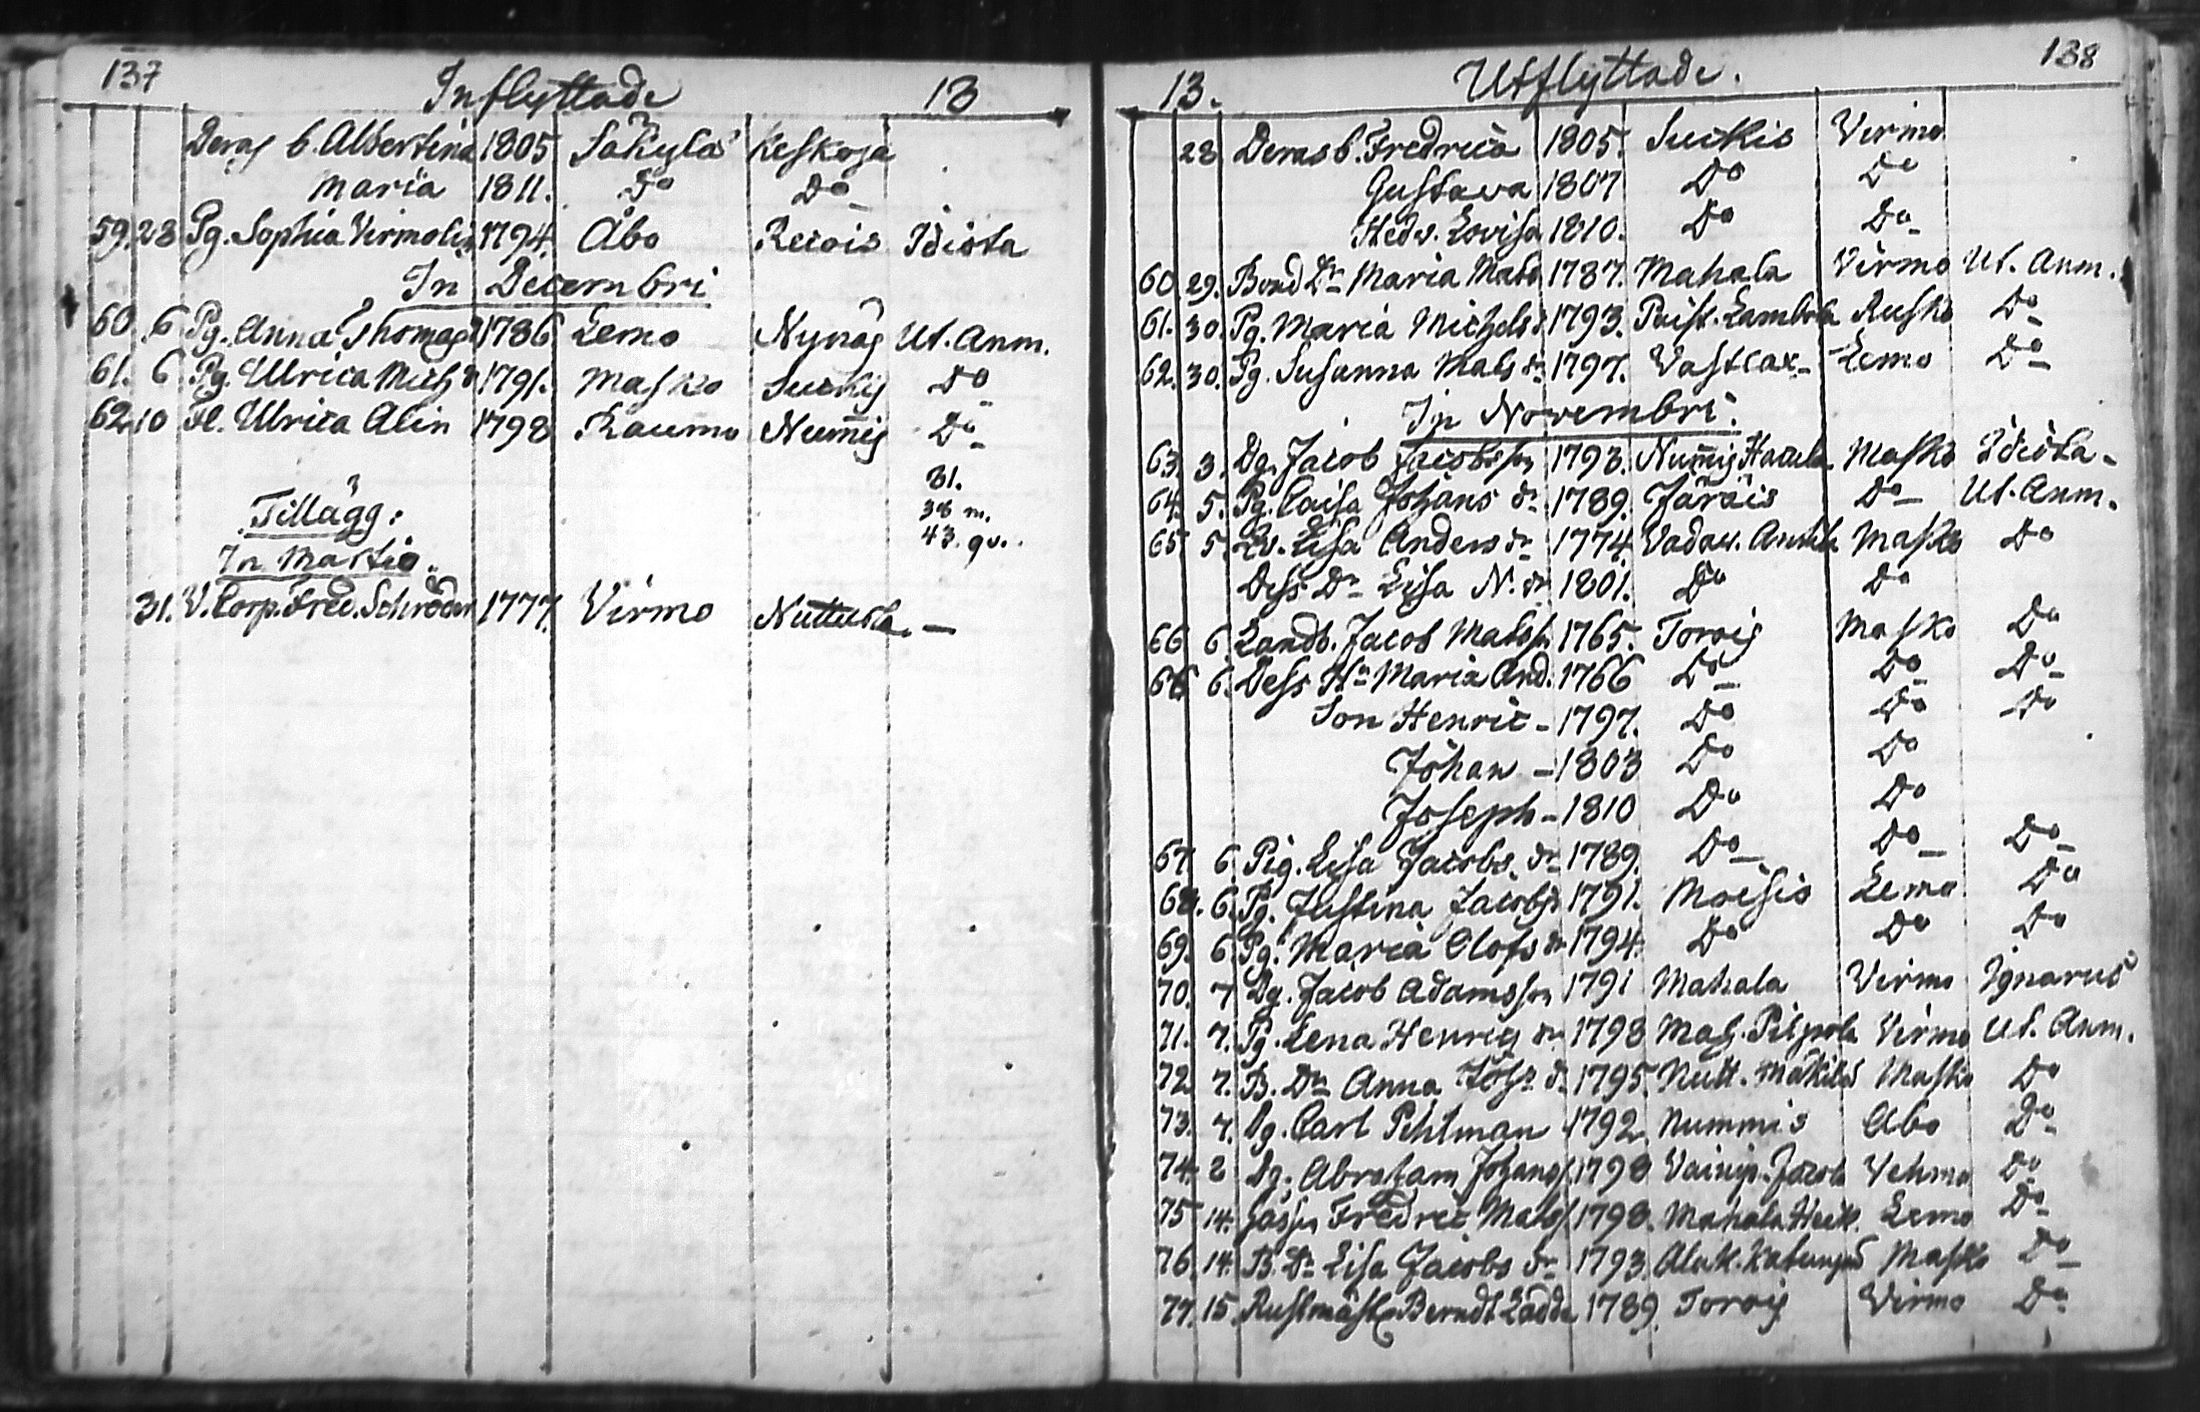 137 Inflyttade 13
Deras b. Albertina 1805 Säkylä Keskoja
Maria 1811. Do Do
59. 28 Pg. Sophia Virmolin 1794. Åbo Recois Idiota
In Decembri
60. 6 Pg. Anna Thomasd 1786 Lemo Nynäs Ut. Anm.
61. 6 Pg. Ulrica Mich d 1791. Masko Suckis Do
62. 10 Fl. Ulrica Alin 1798 Raumo Num̄is Do
31.
38 m.
43. qv.
Tillägg:
In Martio.
31. V. Corp. Fred. Schröder 1777. Virmo Nuttusla. —
13. Utflyttade. 138
28 Deras b. Fredrica 1805. Suckis Virmo
Gustava 1807 Do Do
Hedv. Lovisa 1810. Do Do
60. 29. Bond Dr Maria Mats 1787. Mahala Virmo Ut. Anm.
61. 30. Pg. Maria Michels d 1793. Paist. Lambola Rusko Do
62. 30. Pg. Susanna Mats dr 1797. Vastcax Lemo Do
In Novembri.
63. 3. Dg. Jacob Jacobsson 1793. Num̄is Masko Idiota
64. 5. Pg. Caisa Johans dr 1789. Järäis Do Ut. Anm.
65 5. Lisa Anders dr 1774 Masko Do
Dess Dr Lisa N. dr 1801. Do Do
66 6 Landb. Jacob Matsson 1765. Torois Masko Do
66 6. Dess Hu Maria And. 1766 Do Do Do
Son Henric - 1797. Do Do Do
Johan - 1803 Do Do
Joseph - 1810 Do Do
67 6. Pig. Lisa Jacobs dr 1789. Do Do Do
68. 6. Pg. Justina Jacobsd 1791. Moisis Lemo Do
69. 6. Pg. Maria Olofs dr 1794. Do Do Do
70. 7 Dg. Jacob Adamsson 1791 Mahala Virmo Ignarus
71. 7. Pg. Lena Henrics dr 1798 Virmo Ut. Anm.
72 7. B. Dr Anna Joh. d. 1795. Nutt. Mäkilä Masko Do
73. 7. Dg. Carl Pihlman 1792 Nummis Åbo Do
74. 8 Dg. Abraham Johanss. 1798 Vainip. Jacola Vehmo Do
75 14. Gossen Fredric Mats. 1798. Mahala Heik. Lemo Do
76. 14. B. Dr Lisa Jacobs dr 1793. Masko Do
77. 15. Rustmäst. Berndt Lädde 1789. Torois Virmo Do